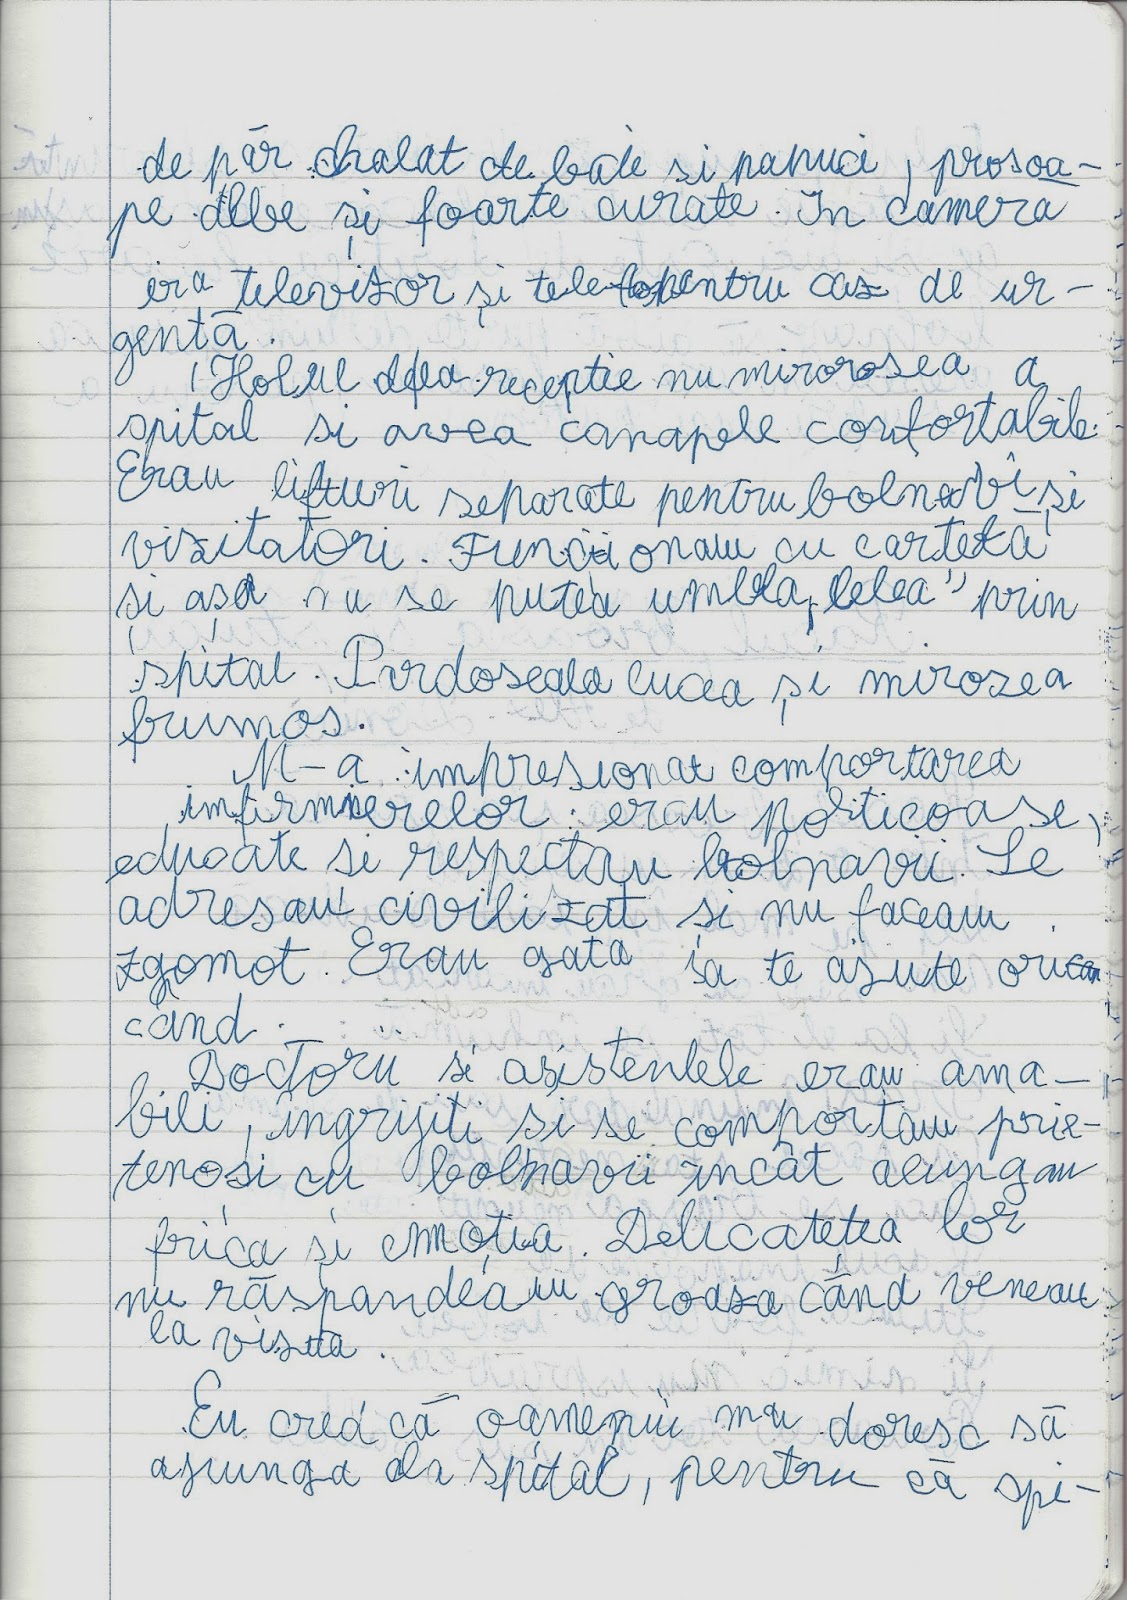 de păr chalat de baie si papuci, prosoa-
pe albe și foarte curate. In camera
era televizor și telefon pentru caz de ur-
gentă.
Holul de la receptie nu mirorosea a
spital si avea canapele confortabile.
Erau lifturi separate pentru bolnavî și
vizitatori. Funcționau cu cartelă
și așa nu se putea umbla „lelea” prin
spital. Pardoseala lucea și mirozea
frumos.
M-a impresionat comportarea
infirmierelor: erau politicoase,
educate si respectau bolnavii. Se
adresau civilizat și nu faceau
zgomot. Erau gata sa te ajute ori
când.
Doctorii si asistentele erau ama-
bili, îngrijiti si se comportau prie-
tenosi cu bolnavii încât alungau
frica și emoția. Delicatetea lor
nu răspandeau groaza când veneau
la vizita.
Eu cred că oamenii nu doresc să
ajunga la spital, pentru că spi-